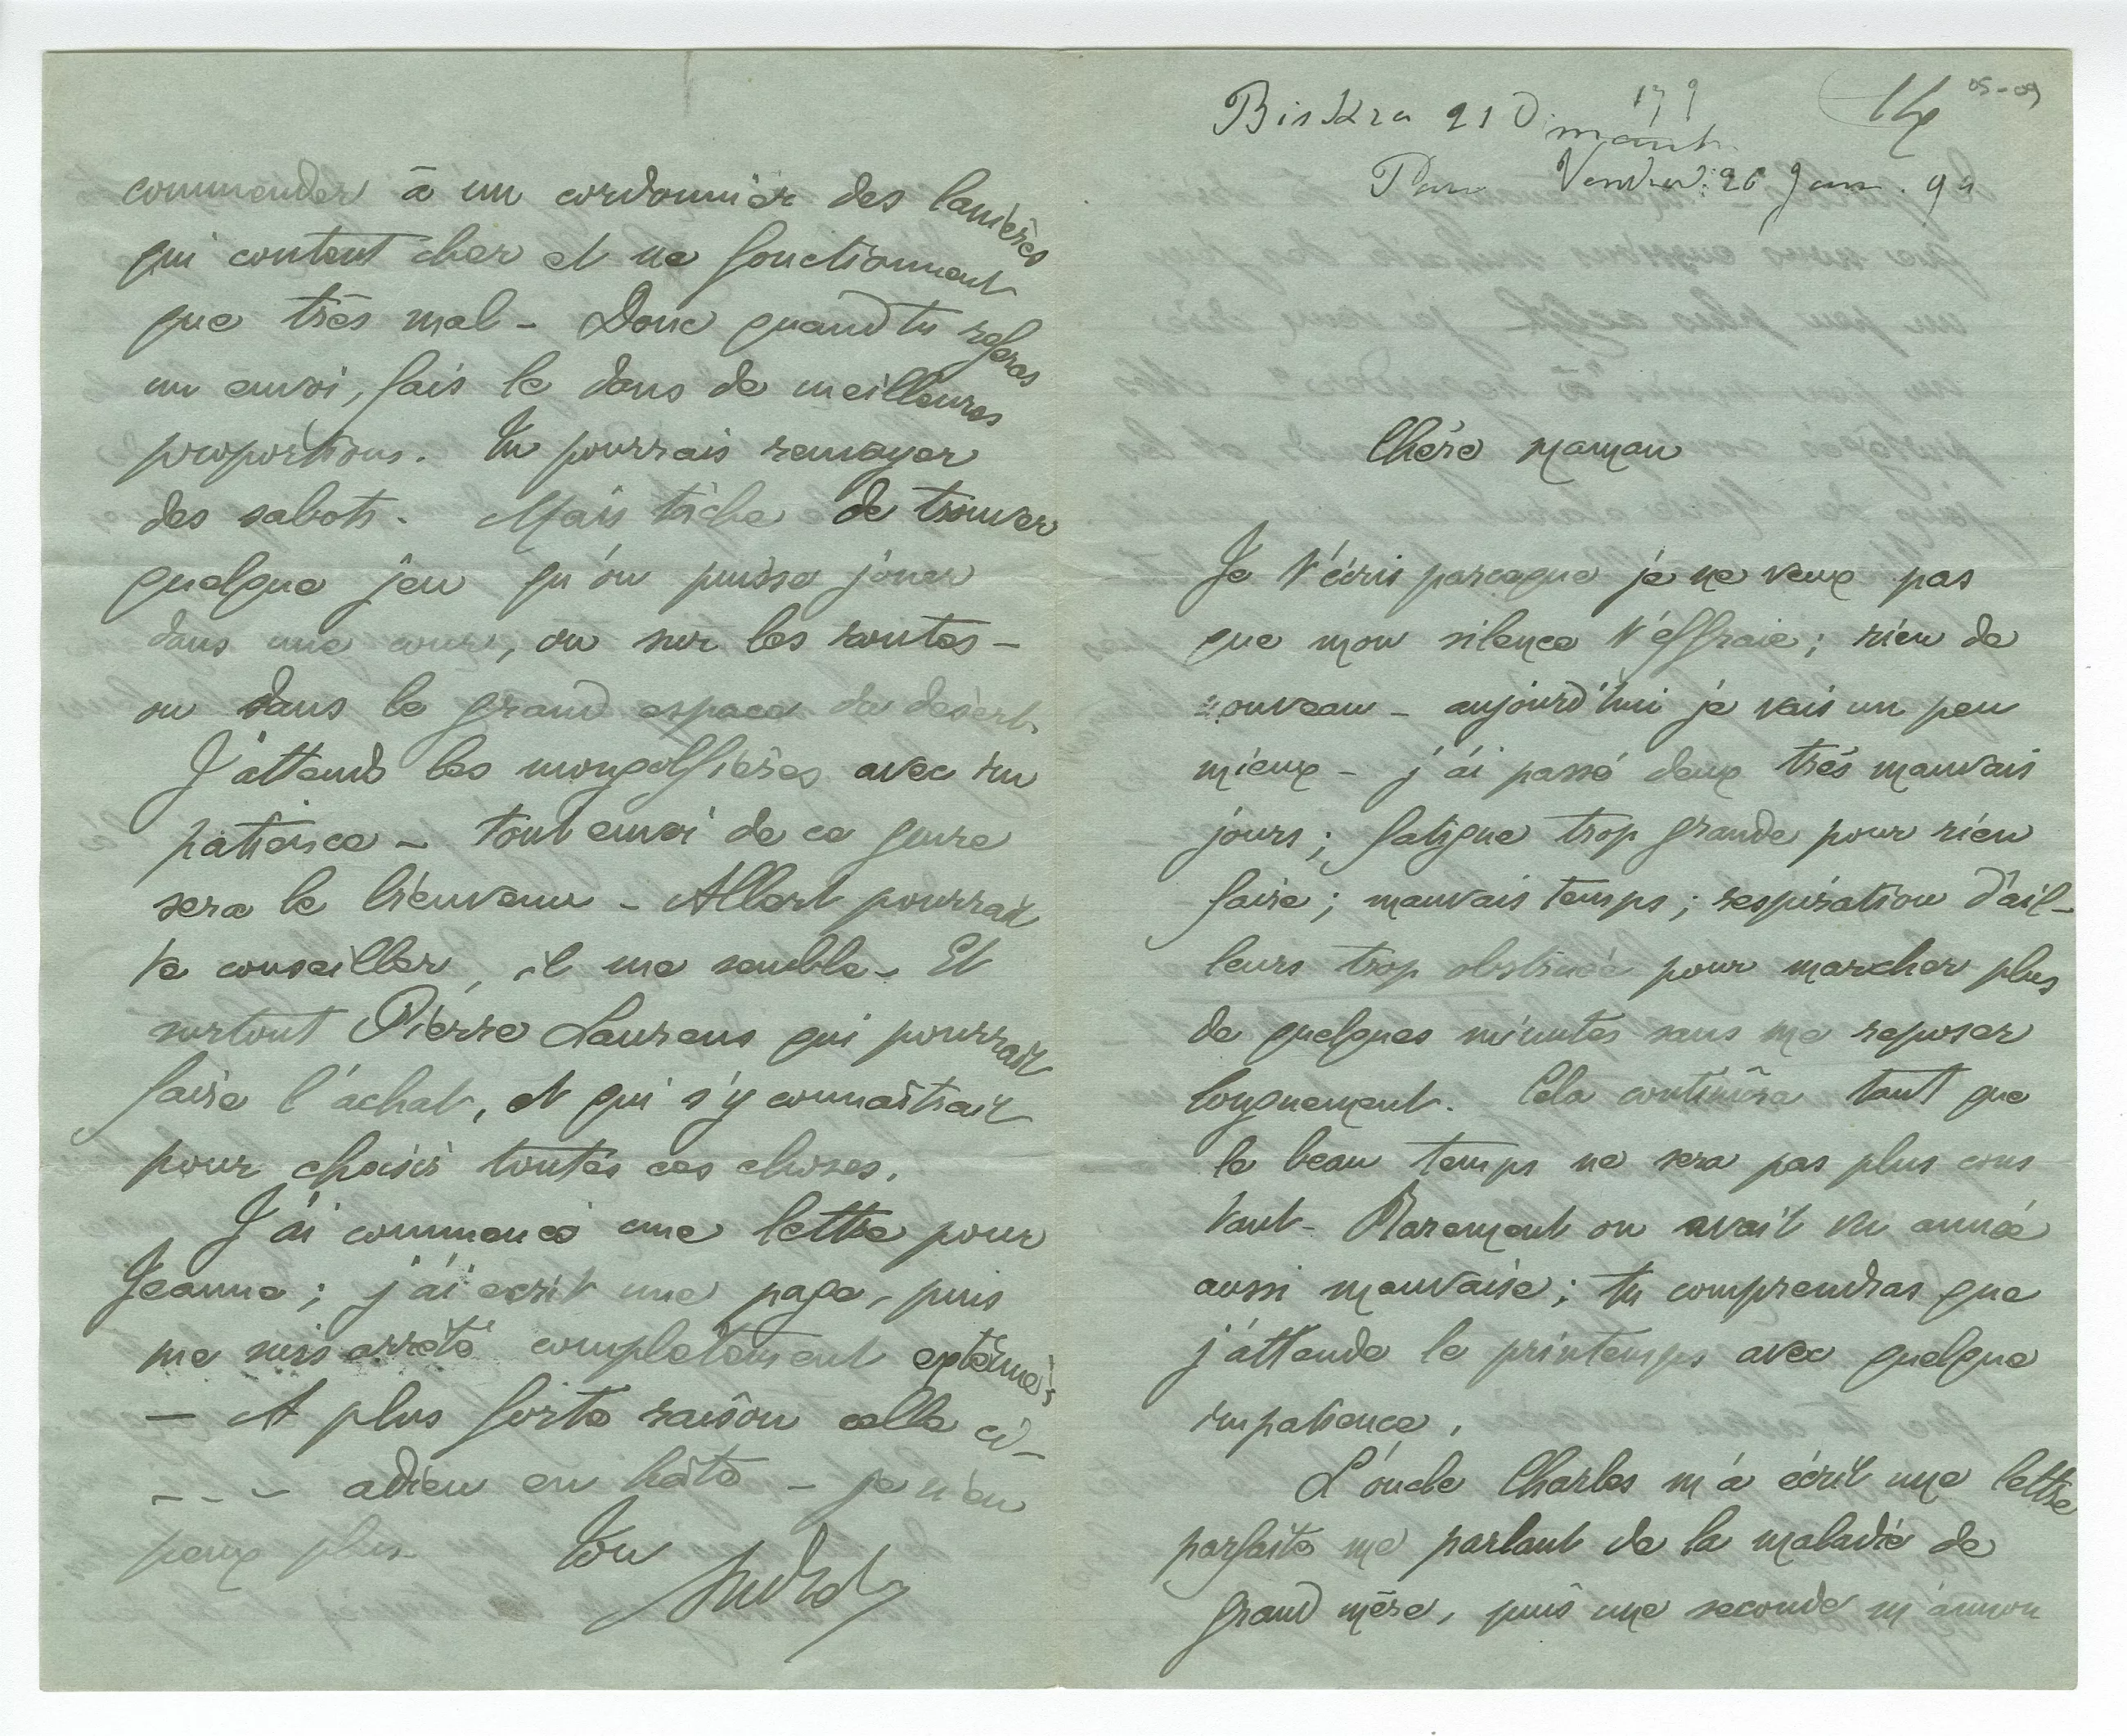 Biskra 21 D
Vendred. 26 Janv. 94
Chère maman
Je t'écris parceque je ne veux pas
que mon silence t'effraie ; rien de
nouveau – aujourd'hui je vais un peu
mieux – j'ai passé deux très mauvais
jours ; fatigue trop grande pour rien
faire ; mauvais temps ; respiration d'ail-
leurs trop obstruée pour marcher plus
de quelques minutes sans me reposer
longuement. Cela continûra tant que
le beau temps ne sera pas plus cons
tant – Rarement on avait vu année
aussi mauvaise ; tu comprendras que
j'attende le printemps avec quelque
impatience.
L'oncle Charles m'a écrit une lettre
parfaite me parlant de la maladie de
grand mère, puis une seconde m'annon
commander à un cordonnier des lanières
qui coutent cher et ne fonctionnent
que très mal – Donc quand tu referas
un envoi, fais le dans de meilleures
proportions. Tu pourrais renvoyer
des sabots. Mais tâche de trouver
quelque jeu qu'on puisse jouer
dans une cour, ou sur les routes –
ou dans le grand espace du désert.
J'attends les mongolfières avec im
patience – tout envoi de ce genre
sera le bienvenu – Albert pourrait
te conseiller, il me semble – Et
surtout Pierre Laurens qui pourrait
faire l'achat, et qui s'y connaîtrait
pour choisir toutes ces choses.
J'ai commencé une lettre pour
Jeanne ; j'ai écrit une page, puis
me suis arrêté complètement exténué ;
– A plus forte raison celle ci –
– – – adieu en hâte – je n'en
peux plus – Ton
André